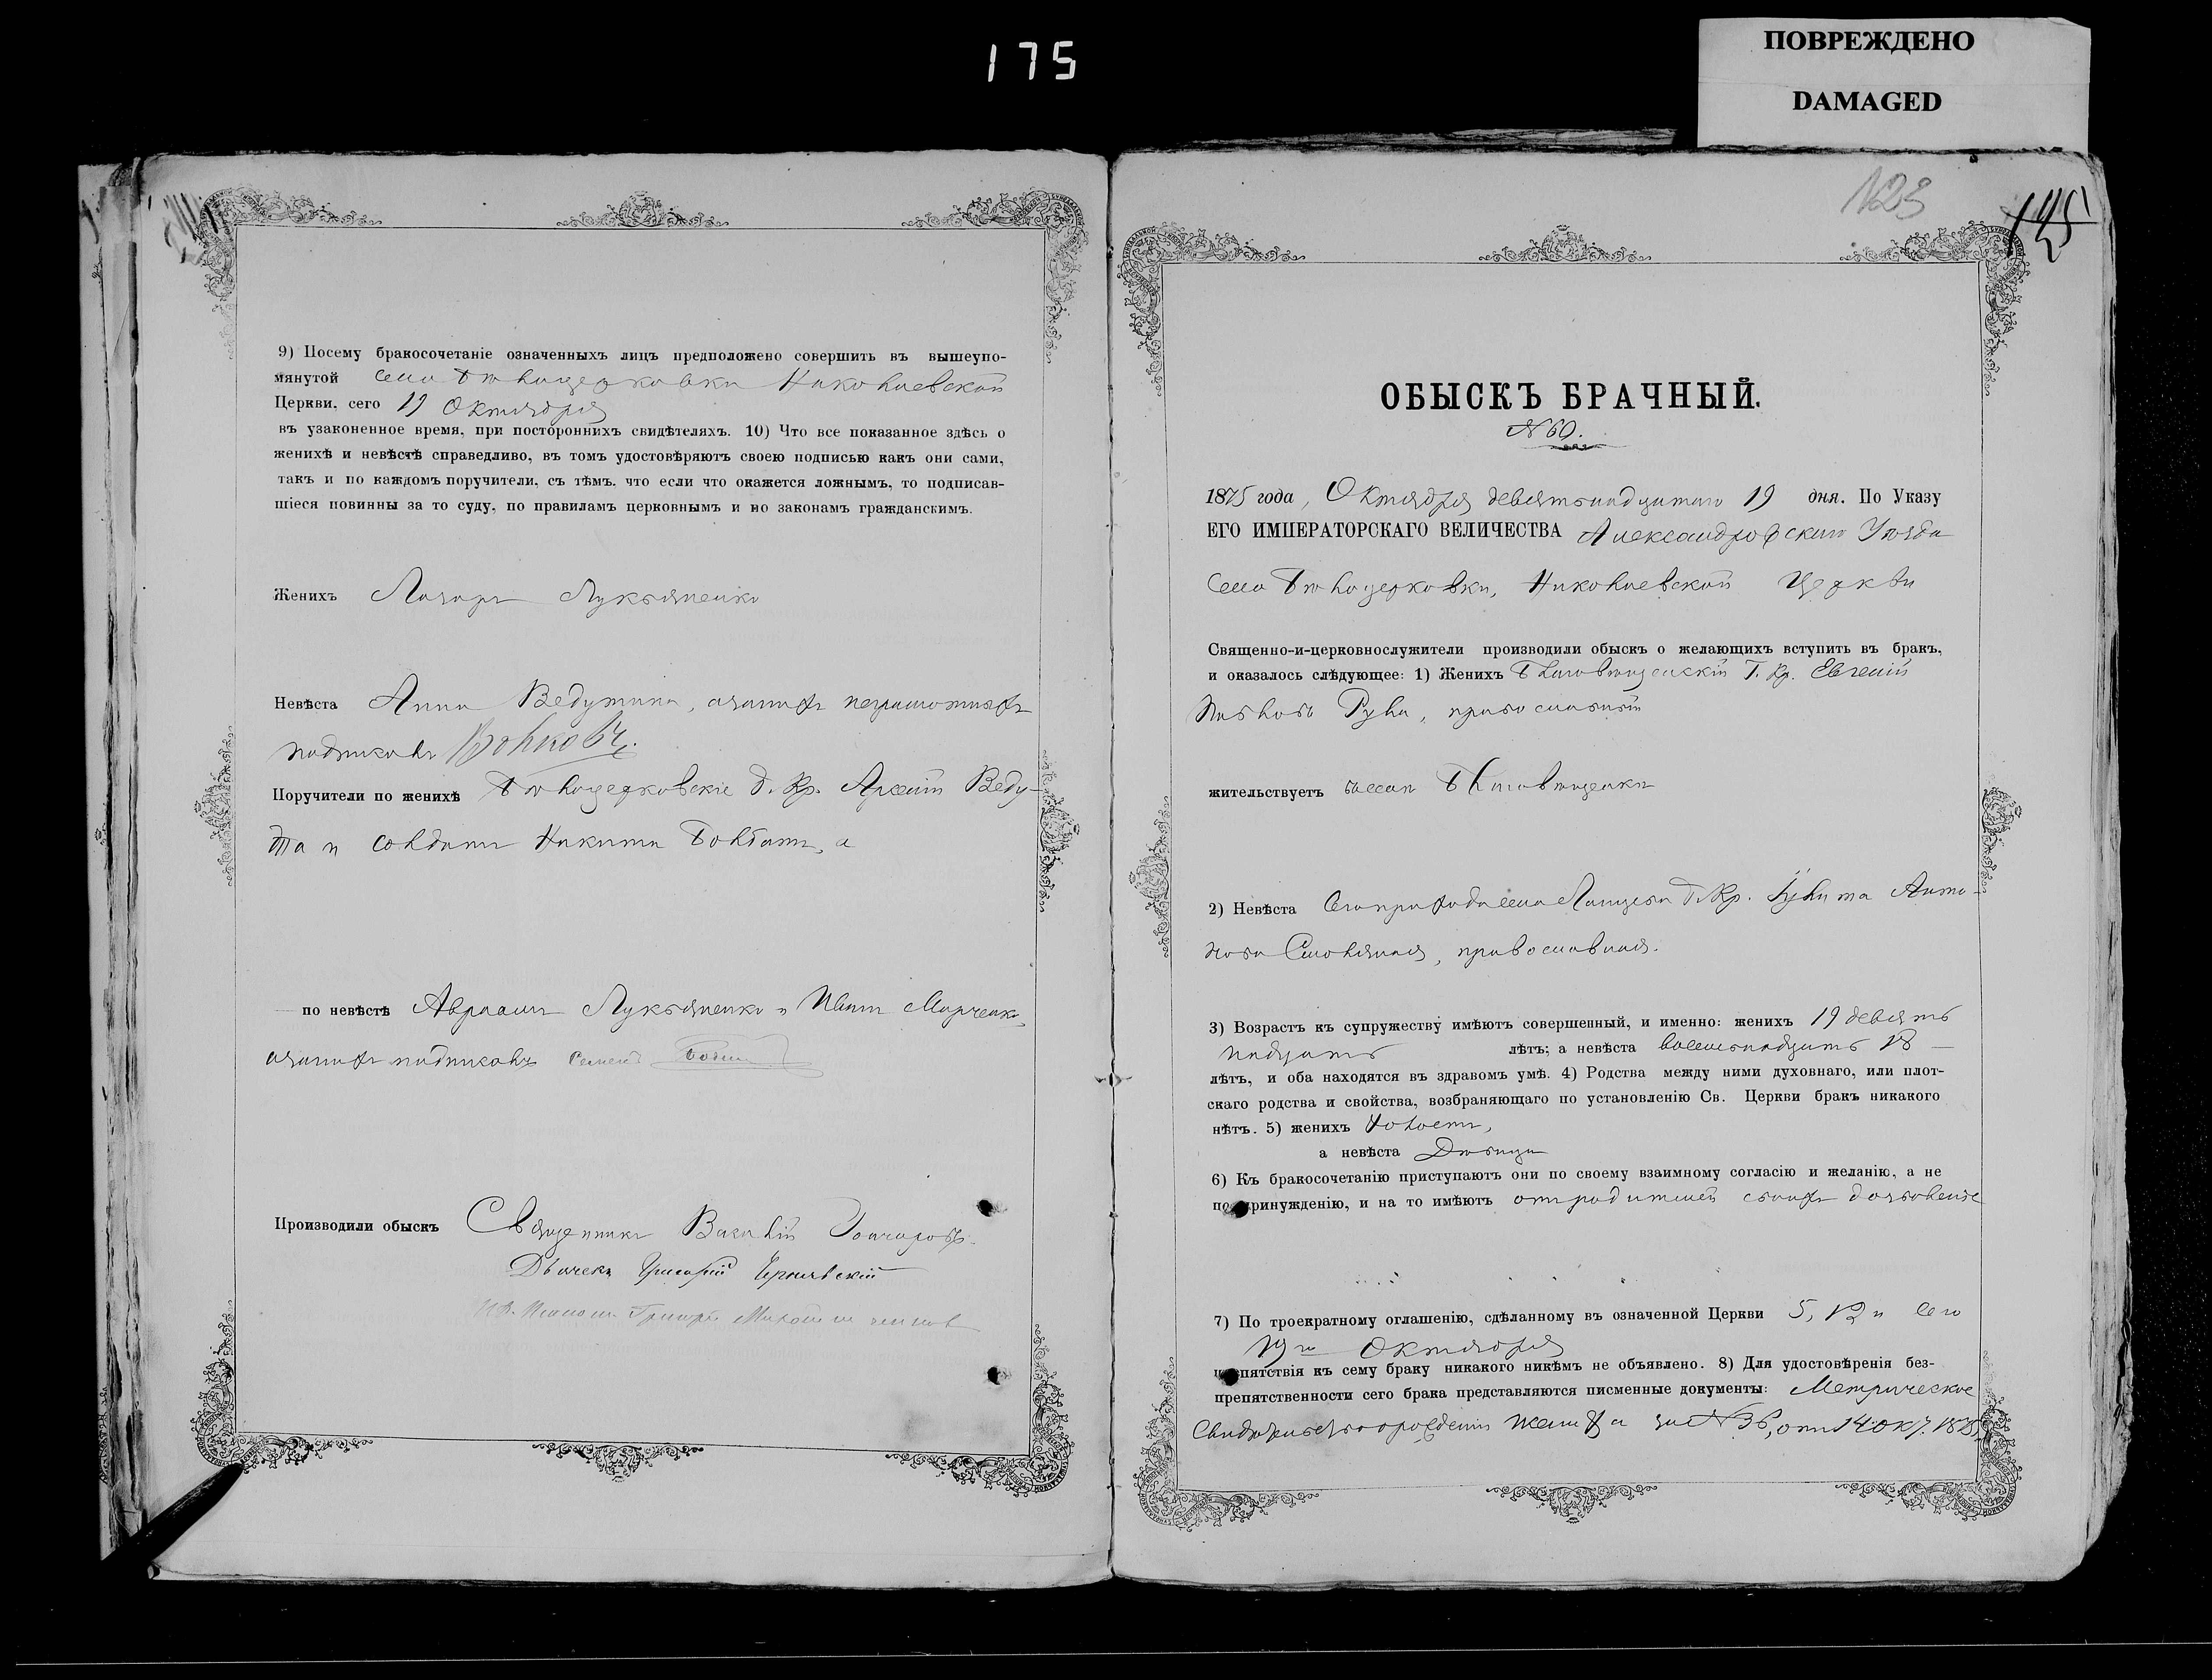 175
ПОВРЕЖДЕНО
DAMAGED
9) Посему бракосочетаніе означенныхъ лицъ предположено совершить въ вышеупо-
мянутой села Бѣлоцерковки Николаевской
Церкви, сего 19 Октября
въ узаконенное время, при постороннихъ свидѣтеляхъ. 10) Что все показанное здѣсь о
женихѣ и невѣстѣ справедливо, въ томъ удостовѣряютъ своею подписью какъ они сами,
такъ и по каждомъ поручители, съ тѣмъ, что если что окажется ложнымъ, то подписав-
шіеся повинны за то суду, по правиламъ церковнымъ и по законамъ гражданскимъ.
Женихъ Лазарь Лукьяненко
Невѣста Анна Ведутина, а за нихъ неграмотныхъ
подписалъ Волковъ.
Поручители по женихѣ Бѣлоцерковскіе Г. Кр. Арсеній Веду-
та и солдатъ Никита, а
по невѣстѣ Авраамъ Лукьяненко и Иванъ Марченко,
а за нихъ подписалъ Семенъ
Производили обыскъ Священникъ Василій Гончаровъ.
Дьячекъ Григорій Чернявскій
Григорій
N23
145
ОБЫСКЪ БРАЧНЫЙ.
N 60.
1875 года, Октября девятьнадцатаго 19 дня. По Указу
ЕГО ИМПЕРАТОРСКАГО ВЕЛИЧЕСТВА Александровскаго Уѣзда
Села Бѣлоцерковки, Николаевской Церкви
Священно-и-церковнослужители производили обыскъ о желающихъ вступить въ бракъ,
и оказалось слѣдующее: 1) Женихъ Благовѣщенскій Г. Кр. Евгеній
Рула, православный
жительствуетъ въ селѣ Благовѣщенки
2) Невѣста Сего прихода села Г. Кр. Улита Анто-
нова, православная.
3) Возрастъ къ супружеству имѣютъ совершенный, и именно: женихъ 19 девять
надцать лѣтъ; а невѣста восемьнадцать 18
лѣтъ, и оба находятся въ здравомъ умѣ. 4) Родства между ними духовнаго, или плот-
скаго родства и свойства, возбраняющаго по установленію Св. Церкви бракъ никакого
нѣтъ. 5) женихъ Холостъ,
а невѣста Дѣвица
6) Къ бракосочетанію приступаютъ они по своему взаимному согласію и желанію, а не
по принужденію, и на то имѣютъ отъ родителей своихъ дозволеніе
7) По троекратному оглашенію, сдѣланному въ означенной Церкви 5, 12 и сего
19го Октября
препятствія къ сему браку никакого никѣмъ не объявлено. 8) Для удостовѣренія без-
препятственности сего брака представляются писменные документы: Метрическое
Свидѣтельство о рожденіи жениха за N 36, отъ 14 окт. 1875.